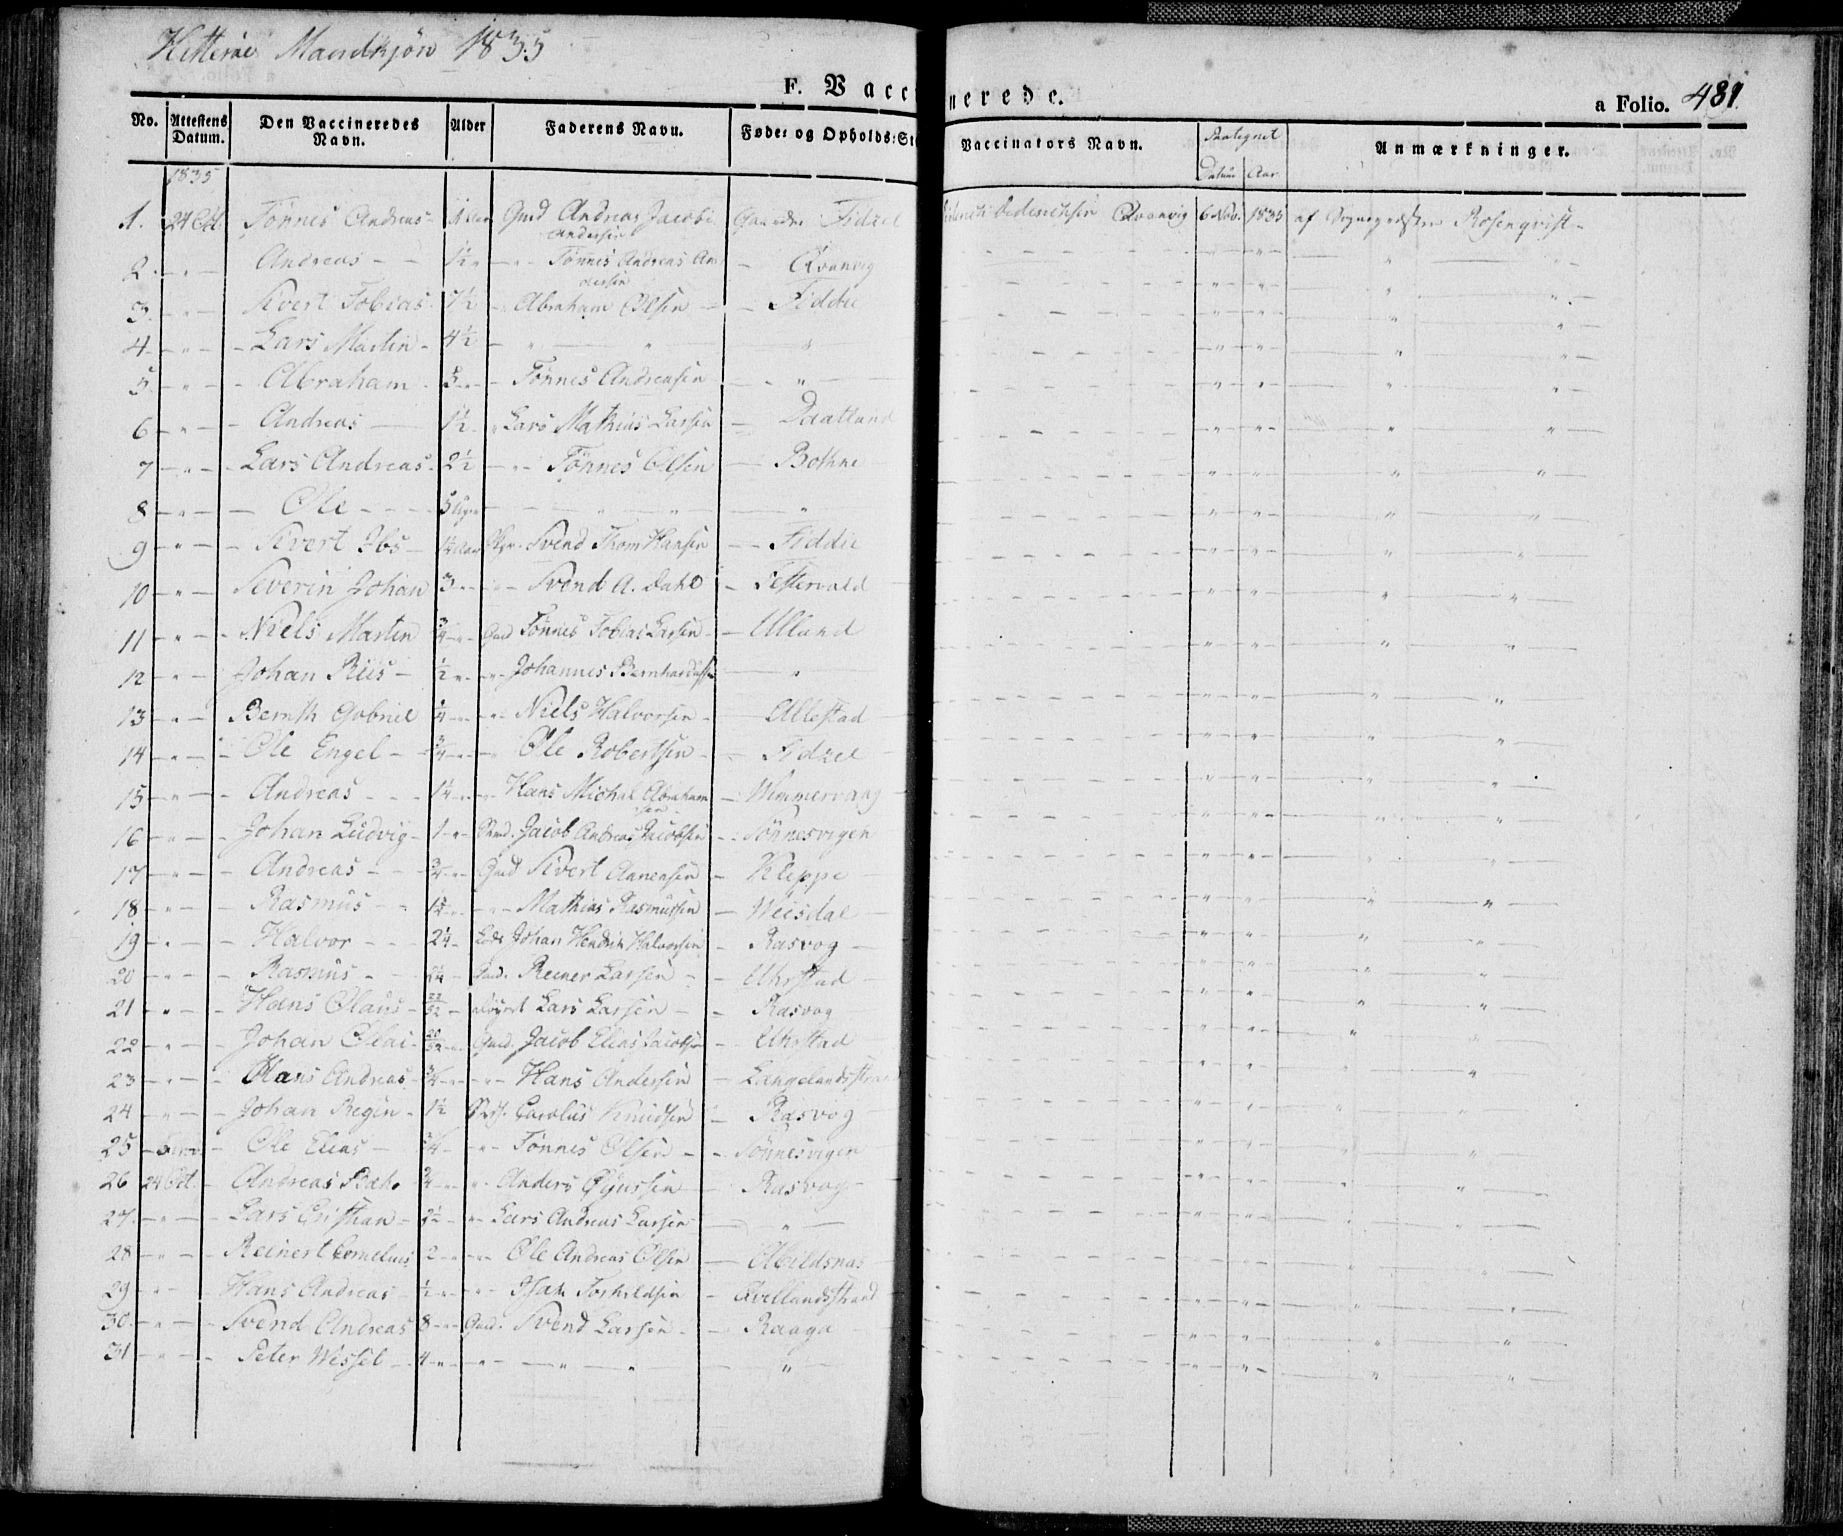 Hitterøe Mandkjøn 1835
F. Vaccinerede.
a Folio. 481.
No. | Attestens Datum. | Den Vaccineredes Navn. | Alder | Faderens Navn. | Føde: og Opholds: St | Vaccinators Navn. | Paategnet Datum Aar | Anmærkninger.
1835
1. 24 Oct. Tønnes Andreas Gmd Andreas Jacob Andersen Gaarden Fidzel Didericksen Qvanvig 6 Nov. 1835 af Sognepræsten Rosenqvist
2. " Andreas 1½ " Tønnes Andreas Andersen Qvanvig
3. " Sivert Tobias 7½ " Abraham Olsen Fiddie
4 " Lars Martin 4½ " " "
5. " Abraham 5 " Tønnes Andreasen "
6 " Andreas 1½ " Lars Mathias Larsen Daatland
7 " Lars Andreas 2½ " Tønnes Olsen Bothne
8 " Ole 5 Uger " " "
9 " Sivert Ibs Svend Thom Hansen Fiddie
10 " Severin Johan 3 " Svend A. Dahl
11 " Niels Martin ¾ " Gmd Tønnes Tobias Larsen Ulland
12 " Johan Riis ½ " " Johannes Bernhardus "
13 " Bernth Gabriel ¼ " " Niels Halvorsen Allestad
14 " Ole Engel ¾ " " Ole Robertsen Fidzel
15 " Andreas 1¼ " " Hans Michal Abrahamsen Wimmervaag
16 " Johan Ludvig 1 " Jacob Andreas Jacobsen Tønnesvigen
17 " Andreas ¾ " Gmd Sivert Aanensen Kleppe
18 " Rasmus 1½ " " Mathias Rasmussen Weisdal
19 " Halvor 2¼ Lods Johan Hendrik Halvorsen Rasvog
20 " Rasmus 2¼ Gmd. Reiner Larsen Uhrstad
21 " Hans Olaus 22/52 Lars Larsen Rasvog
22 " Johan Olai 20/52 " Gmd. Jacob Elias Jacobsen Uhrstad
23 " Hans Andreas ¾ " " Hans Andersen Langelandsstrand
24 " Johan Regin 1½ Carolus Knudsen Rasvog
25 Ole Elias ¾ " Tønnes Olsen Tønnesvigen
26 24 Oct. Andreas Bach. ¾ " " Anders Gjussen Rasvog
27. " Lars Cristian 2½ " Lars Andreas Larsen "
28 " Reinert Cornelius 2 " " Ole Andreas Olsen Abildsnas
29 " Hans Andreas ½ " " Isak Torkildsen Qvellandsstrand
30. " Svend Andreas 8 " Gmd. Svend Larsen Raaga
31 " Peter Wessel 4 " " " " "